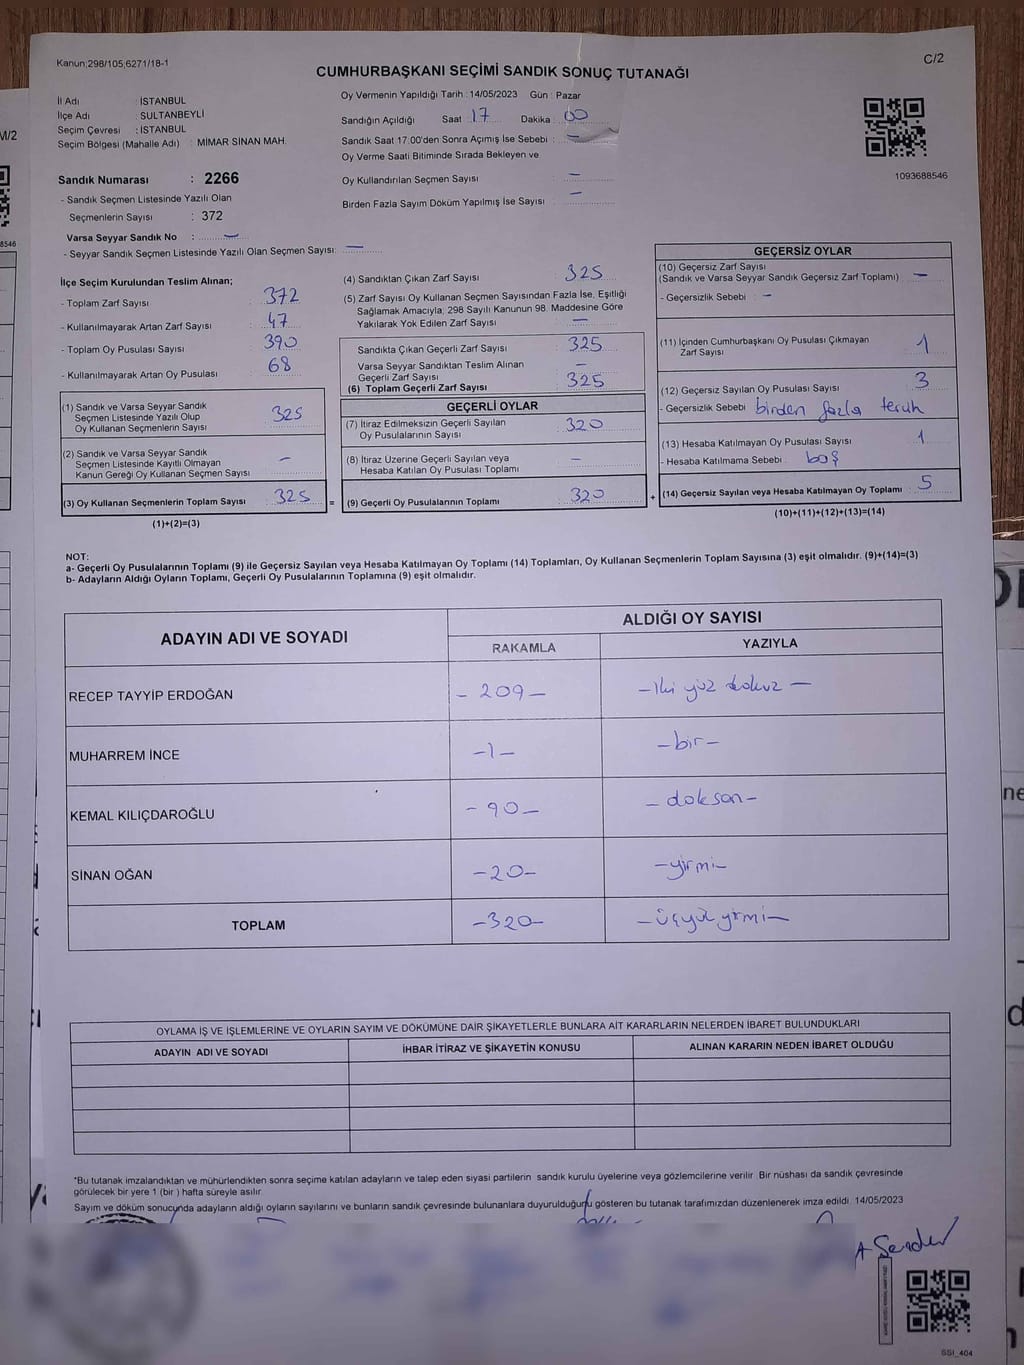 Kanun;298/105;6271/18-1
C/2
CUMHURBAŞKANI SEÇİMİ SANDIK SONUÇ TUTANAĞI
İl Adı : İSTANBUL
İlçe Adı : SULTANBEYLİ
Seçim Çevresi : İSTANBUL
Seçim Bölgesi (Mahalle Adı) : MIMAR SİNAN MAH.
Oy Vermenin Yapıldığı Tarih : 14/05/2023 Gün : Pazar
Sandığın Açıldığı Saat : 17 Dakika : 00
Sandık Saat 17.00'den Sonra Açımış İse Sebebi : —
Oy Verme Saati Bitiminde Sırada Bekleyen ve
Oy Kullandırılan Seçmen Sayısı : —
Birden Fazla Sayım Döküm Yapılmış İse Sayısı : —
1093688546
Sandık Numarası : 2266
- Sandık Seçmen Listesinde Yazılı Olan
Seçmenlerin Sayısı : 372
Varsa Seyyar Sandık No : —
- Seyyar Sandık Seçmen Listesinde Yazılı Olan Seçmen Sayısı: —
İlçe Seçim Kurulundan Teslim Alınan;
- Toplam Zarf Sayısı : 372
- Kullanılmayarak Artan Zarf Sayısı : 47
- Toplam Oy Pusulası Sayısı : 390
- Kullanılmayarak Artan Oy Pusulası : 68
(1) Sandık ve Varsa Seyyar Sandık
Seçmen Listesinde Yazılı Olup
Oy Kullanan Seçmenlerin Sayısı : 325
(2) Sandık ve Varsa Seyyar Sandık
Seçmen Listesinde Kayıtlı Olmayan
Kanun Gereği Oy Kullanan Seçmen Sayısı : —
(3) Oy Kullanan Seçmenlerin Toplam Sayısı : 325
(1)+(2)=(3)
(4) Sandıktan Çıkan Zarf Sayısı : 325
(5) Zarf Sayısı Oy Kullanan Seçmen Sayısından Fazla İse, Eşitliği
Sağlamak Amacıyla; 298 Sayılı Kanunun 98. Maddesine Göre
Yakılarak Yok Edilen Zarf Sayısı : —
Sandıkta Çıkan Geçerli Zarf Sayısı : 325
Varsa Seyyar Sandıktan Teslim Alınan
Geçerli Zarf Sayısı : —
(6) Toplam Geçerli Zarf Sayısı : 325
GEÇERLİ OYLAR
(7) İtiraz Edilmeksizin Geçerli Sayılan
Oy Pusulalarının Sayısı : 320
(8) İtiraz Üzerine Geçerli Sayılan veya
Hesaba Katılan Oy Pusulası Toplamı : —
= (9) Geçerli Oy Pusulalarının Toplamı : 320
GEÇERSİZ OYLAR
(10) Geçersiz Zarf Sayısı
(Sandık ve Varsa Seyyar Sandık Geçersiz Zarf Toplamı) : —
- Geçersizlik Sebebi : —
(11) İçinden Cumhurbaşkanı Oy Pusulası Çıkmayan
Zarf Sayısı : 1
(12) Geçersiz Sayılan Oy Pusulası Sayısı : 3
- Geçersizlik Sebebi : birden fazla tercih
(13) Hesaba Katılmayan Oy Pusulası Sayısı : 1
- Hesaba Katılmama Sebebi : boş
+ (14) Geçersiz Sayılan veya Hesaba Katılmayan Oy Toplamı : 5
(10)+(11)+(12)+(13)=(14)
NOT:
a- Geçerli Oy Pusulalarının Toplamı (9) ile Geçersiz Sayılan veya Hesaba Katılmayan Oy Toplamı (14) Toplamları, Oy Kullanan Seçmenlerin Toplam Sayısına (3) eşit olmalıdır. (9)+(14)=(3)
b- Adayların Aldığı Oyların Toplamı, Geçerli Oy Pusulalarının Toplamına (9) eşit olmalıdır.
ADAYIN ADI VE SOYADI
ALDIĞI OY SAYISI
RAKAMLA YAZIYLA
RECEP TAYYİP ERDOĞAN - 209 - - iki yüz dokuz -
MUHARREM İNCE - 1 - - bir -
KEMAL KILIÇDAROĞLU - 90 - - doksan -
SİNAN OĞAN - 20 - - yirmi -
TOPLAM - 320 - - üçyüzyirmi -
OYLAMA İŞ VE İŞLEMLERİNE VE OYLARIN SAYIM VE DÖKÜMÜNE DAİR ŞİKAYETLERLE BUNLARA AİT KARARLARIN NELERDEN İBARET BULUNDUKLARI
ADAYIN ADI VE SOYADI İHBAR İTİRAZ VE ŞİKAYETİN KONUSU ALINAN KARARIN NEDEN İBARET OLDUĞU
*Bu tutanak imzalandıktan ve mühürlendikten sonra seçime katılan adayların ve talep eden siyasi partilerin sandık kurulu üyelerine veya gözlemcilerine verilir. Bir nüshası da sandık çevresinde
görülecek bir yere 1 (bir ) hafta süreyle asılır.
Sayım ve döküm sonucunda adayların aldığı oyların sayılarını ve bunların sandık çevresinde bulunanlara duyurulduğunu gösteren bu tutanak tarafımızdan düzenlenerek imza edildi. 14/05/2023
SSI_404